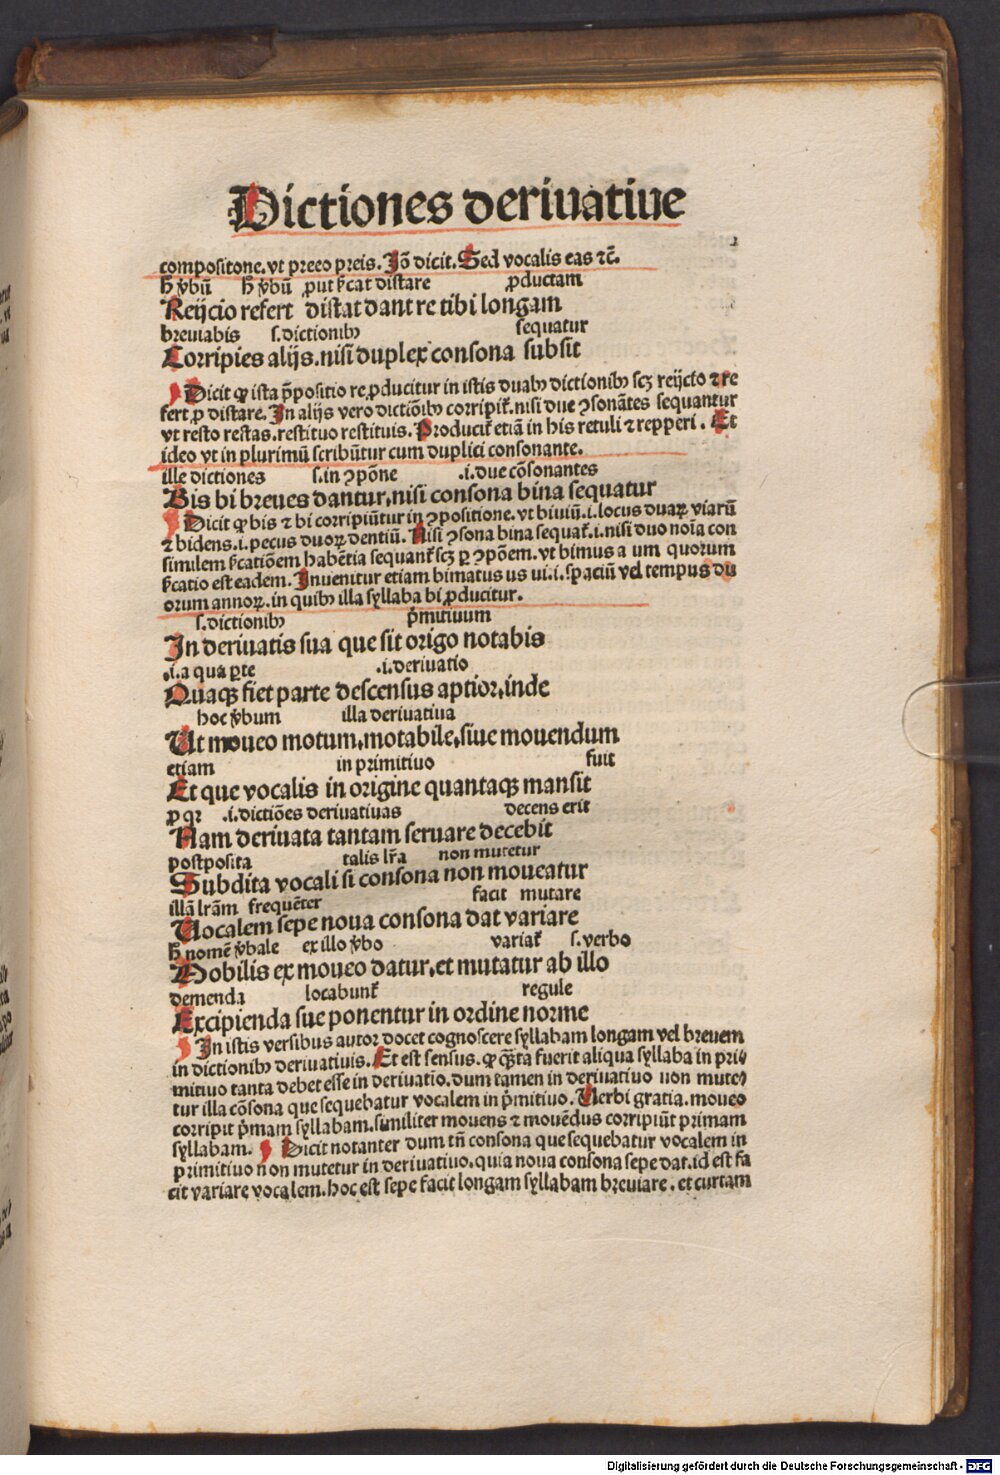 Dictiones deriuatiue
compositone.vt preeo preis.Jõ dicit.Sed vocalis eas ⁊c̃.
h̃ v̓bũ h̃ v̓bũ ꝓut s̓cat distare ꝓductam
Reijcio refert distat dant re tibi longam
breuiabis ſ.dictionibꝰ sequatur
Corripies alijs.nisi duplex consona subsit
Dicit ꝙ ista p̄positio re ꝓducitur in istis duabꝰ dictionibꝰ scꝫ reijcio ⁊ re
fert ꝓ distare. In alijs vero dictiõibꝰ corripit̃.nisi due ꝯsonãtes sequantur
vt resto restas.restituo restituis. Producit̃ etiã in his retuli ⁊ repperi. Et
ideo vt in plurimũ scribũtur cum duplici consonante.
ille dictiones ſ.in ꝯpõne .i.due cõsonantes
Bis bi breues dantur,nisi consona bina sequatur
Dicit ꝙ bis ⁊ bi corripiũtur in ꝯpositione.vt biuiũ.i.locus duaꝝ viarũ
⁊ bidens.i.pecus duoꝝ dentiũ. Nisi ꝯsona bina sequat̃.i.nisi duo noĩa con
similem s̓catiõem habẽtia sequant̃ scꝫ ꝑ ꝯpõem.vt bimus a um quorum
s̓catio est eadem. Inuenitur etiam bimatus us ui.i.spaciũ vel tempus du
orum annoꝝ.in quibꝰ illa syllaba bi ꝓducitur.
ſ.dictionibꝰ p̓mitiuum
In deriuatis sua que sit origo notabis
.i.a qua ꝑte .i.deriuatio
Quaqꝫ fiet parte descensus aptior,inde
hoc v̓bum illa deriuatiua
Ut moueo motum,motabile,siue mouendum
etiam in primitiuo fuit
Et que vocalis in origine quantaqꝫ mansit
ꝓ qꝛ .i.dictiões deriuatiuas decens erit
Nam deriuata tantam seruare decebit
postposita talis lr̃a non mutetur
Subdita vocali si consona non moueatur
illã lrãm frequẽter facit mutare
Uocalem sepe noua consona dat variare
h̃ nomẽ v̓bale ex illo v̓bo variat̃ ſ.verbo
Mobilis ex moueo datur,et mutatur ab illo
demenda locabunt̃ regule
Excipienda sue ponentur in ordine norme
In istis versibus autor docet cognoscere syllabam longam vel breuem
in dictionibꝰ deriuatiuis. Et est sensus. ꝙ q̃ta fuerit aliqua syllaba in pri
mitiuo tanta debet esse in deriuatio.dum tamen in deriuatiuo non mute
tur illa cõsona que sequebatur vocalem in p̓mitiuo. Uerbi gratia.moueo
corripit p̓mam syllabam.similiter mouens ⁊ mouẽdus corripiũt primam
syllabam. Dicit notanter dum tñ consona que sequebatur vocalem in
primitiuo non mutetur in deriuatiuo.quia noua consona sepe dat.id est fa
cit variare vocalem.hoc est sepe facit longam syllabam breuiare.et curtam
Digitalisierung gefördert durch die Deutsche Forschungsgemeinschaft - DFG